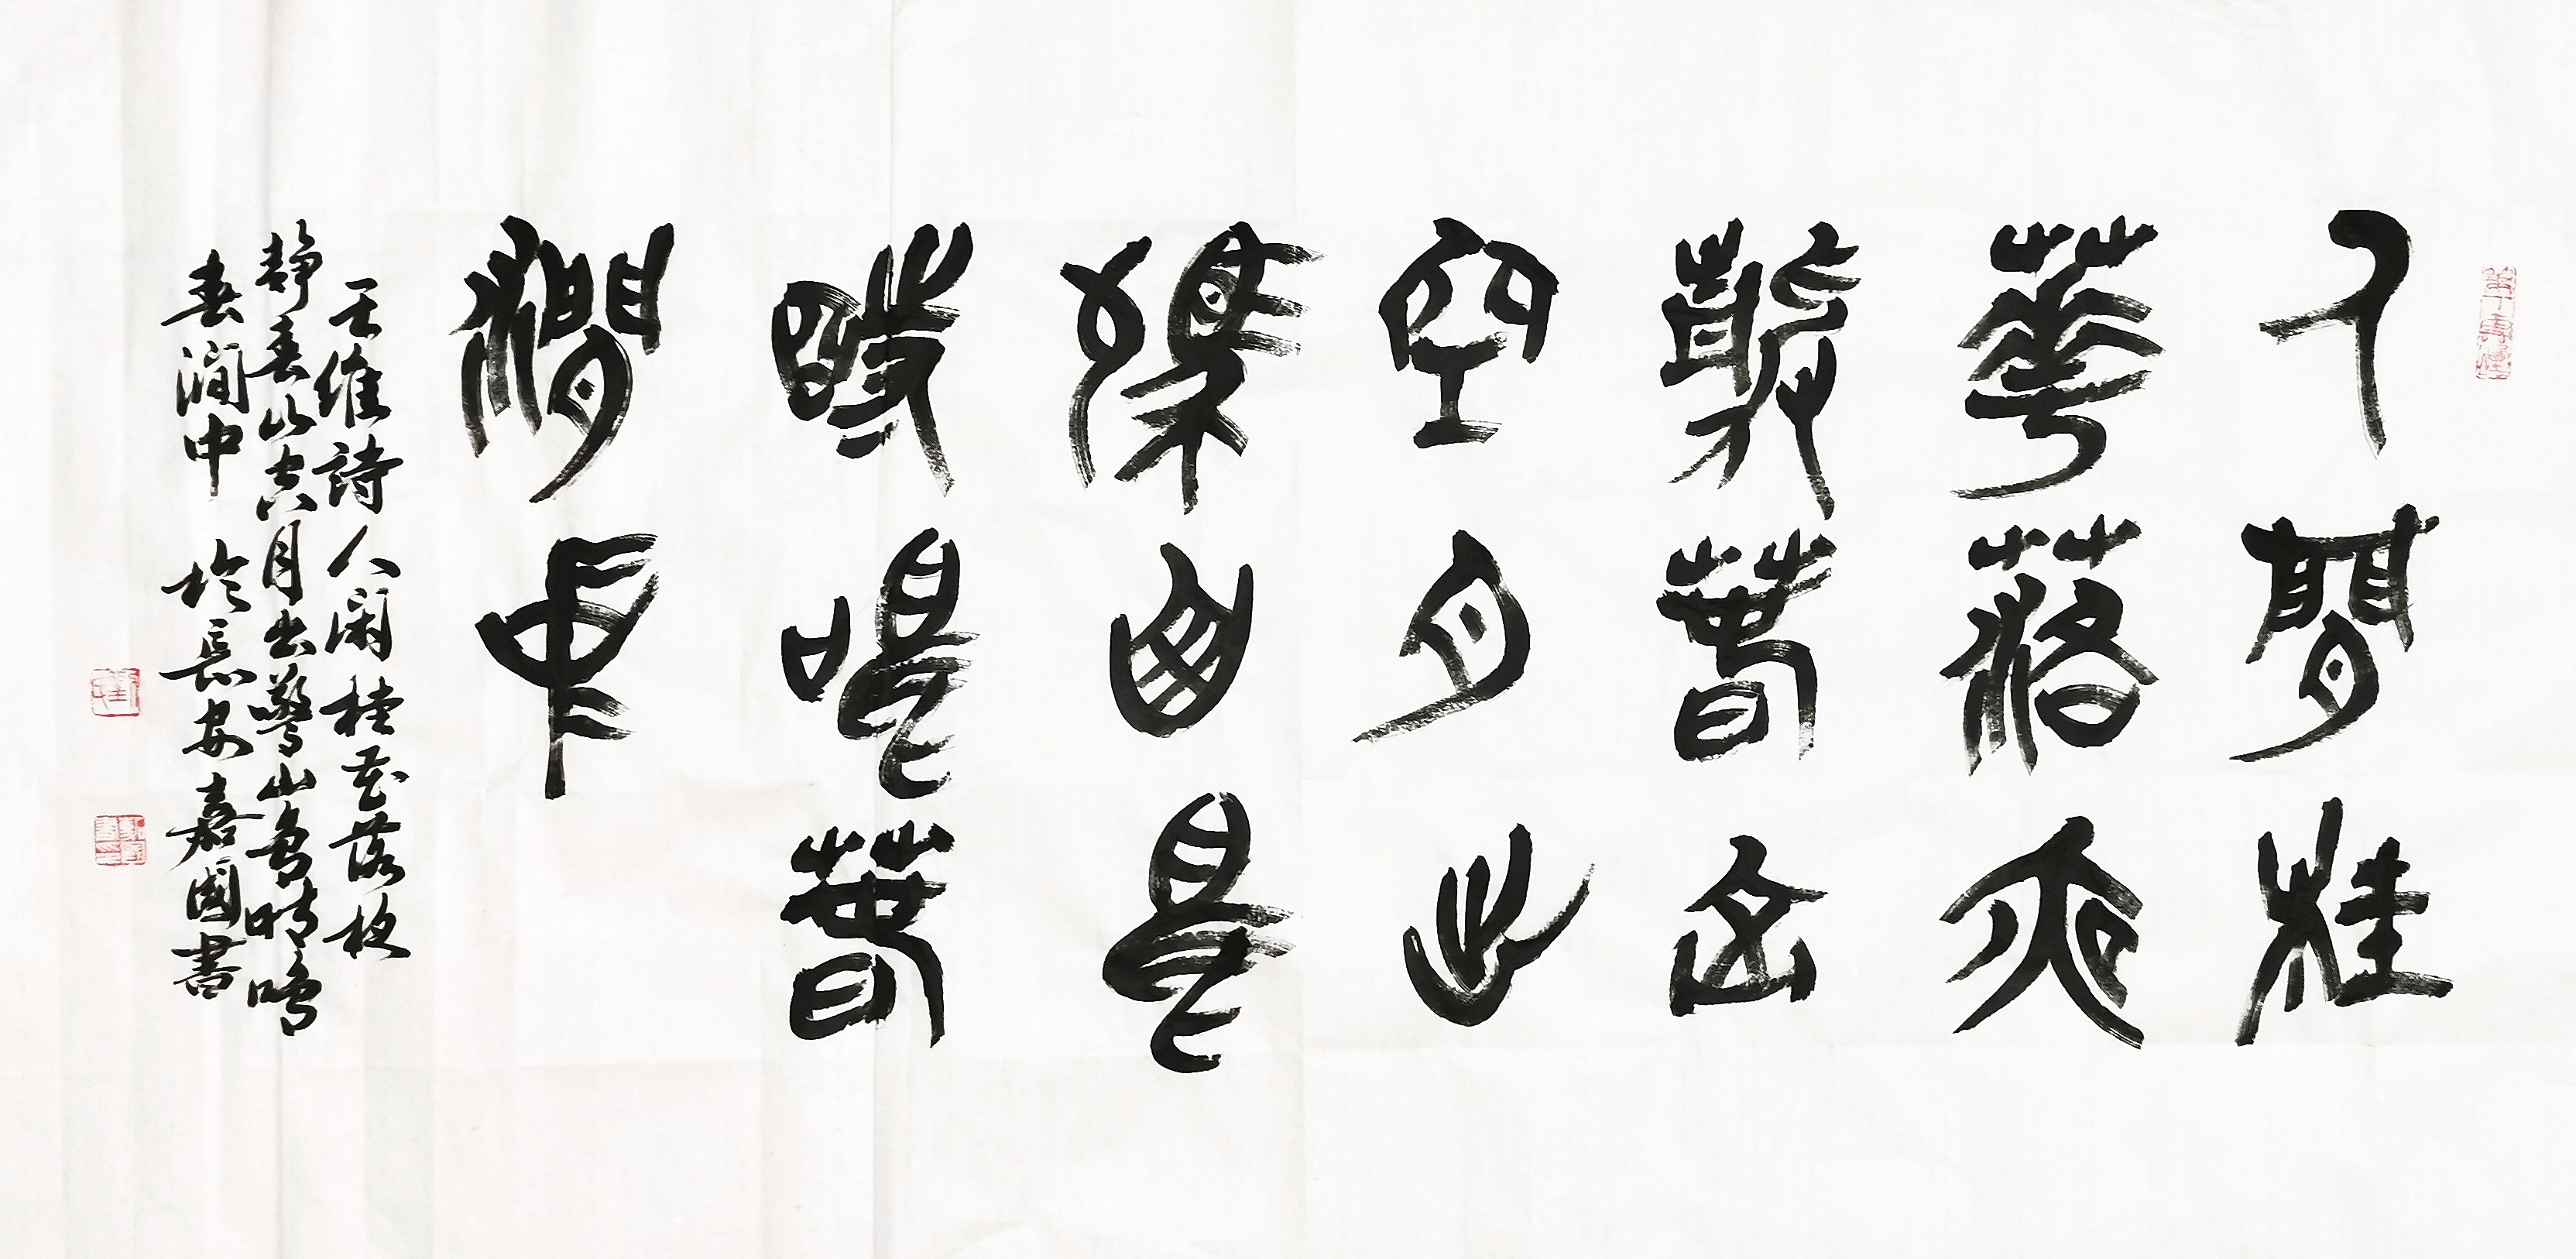 人閒桂
華落夜
靜春山
空月出
驚山鳥
時鳴春
澗中
王維詩 人閑桂花落夜
靜春山空月出驚山鳥時鳴
春澗中 於長安嘉國書